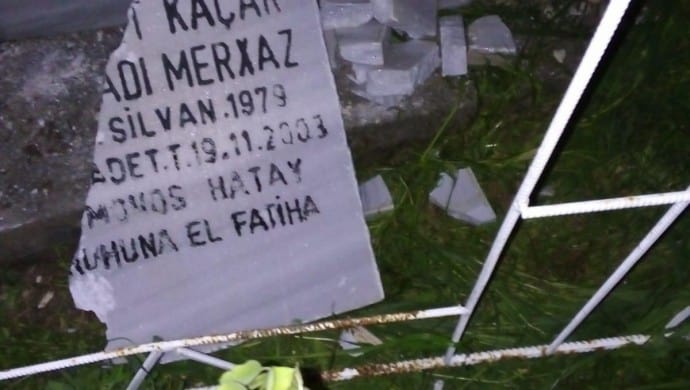 KAÇAR
ADI MERXAZ
SİLVAN.1979
ADET.T.19.11.2003
MONOS HATAY
RUHUNA EL FATİHA